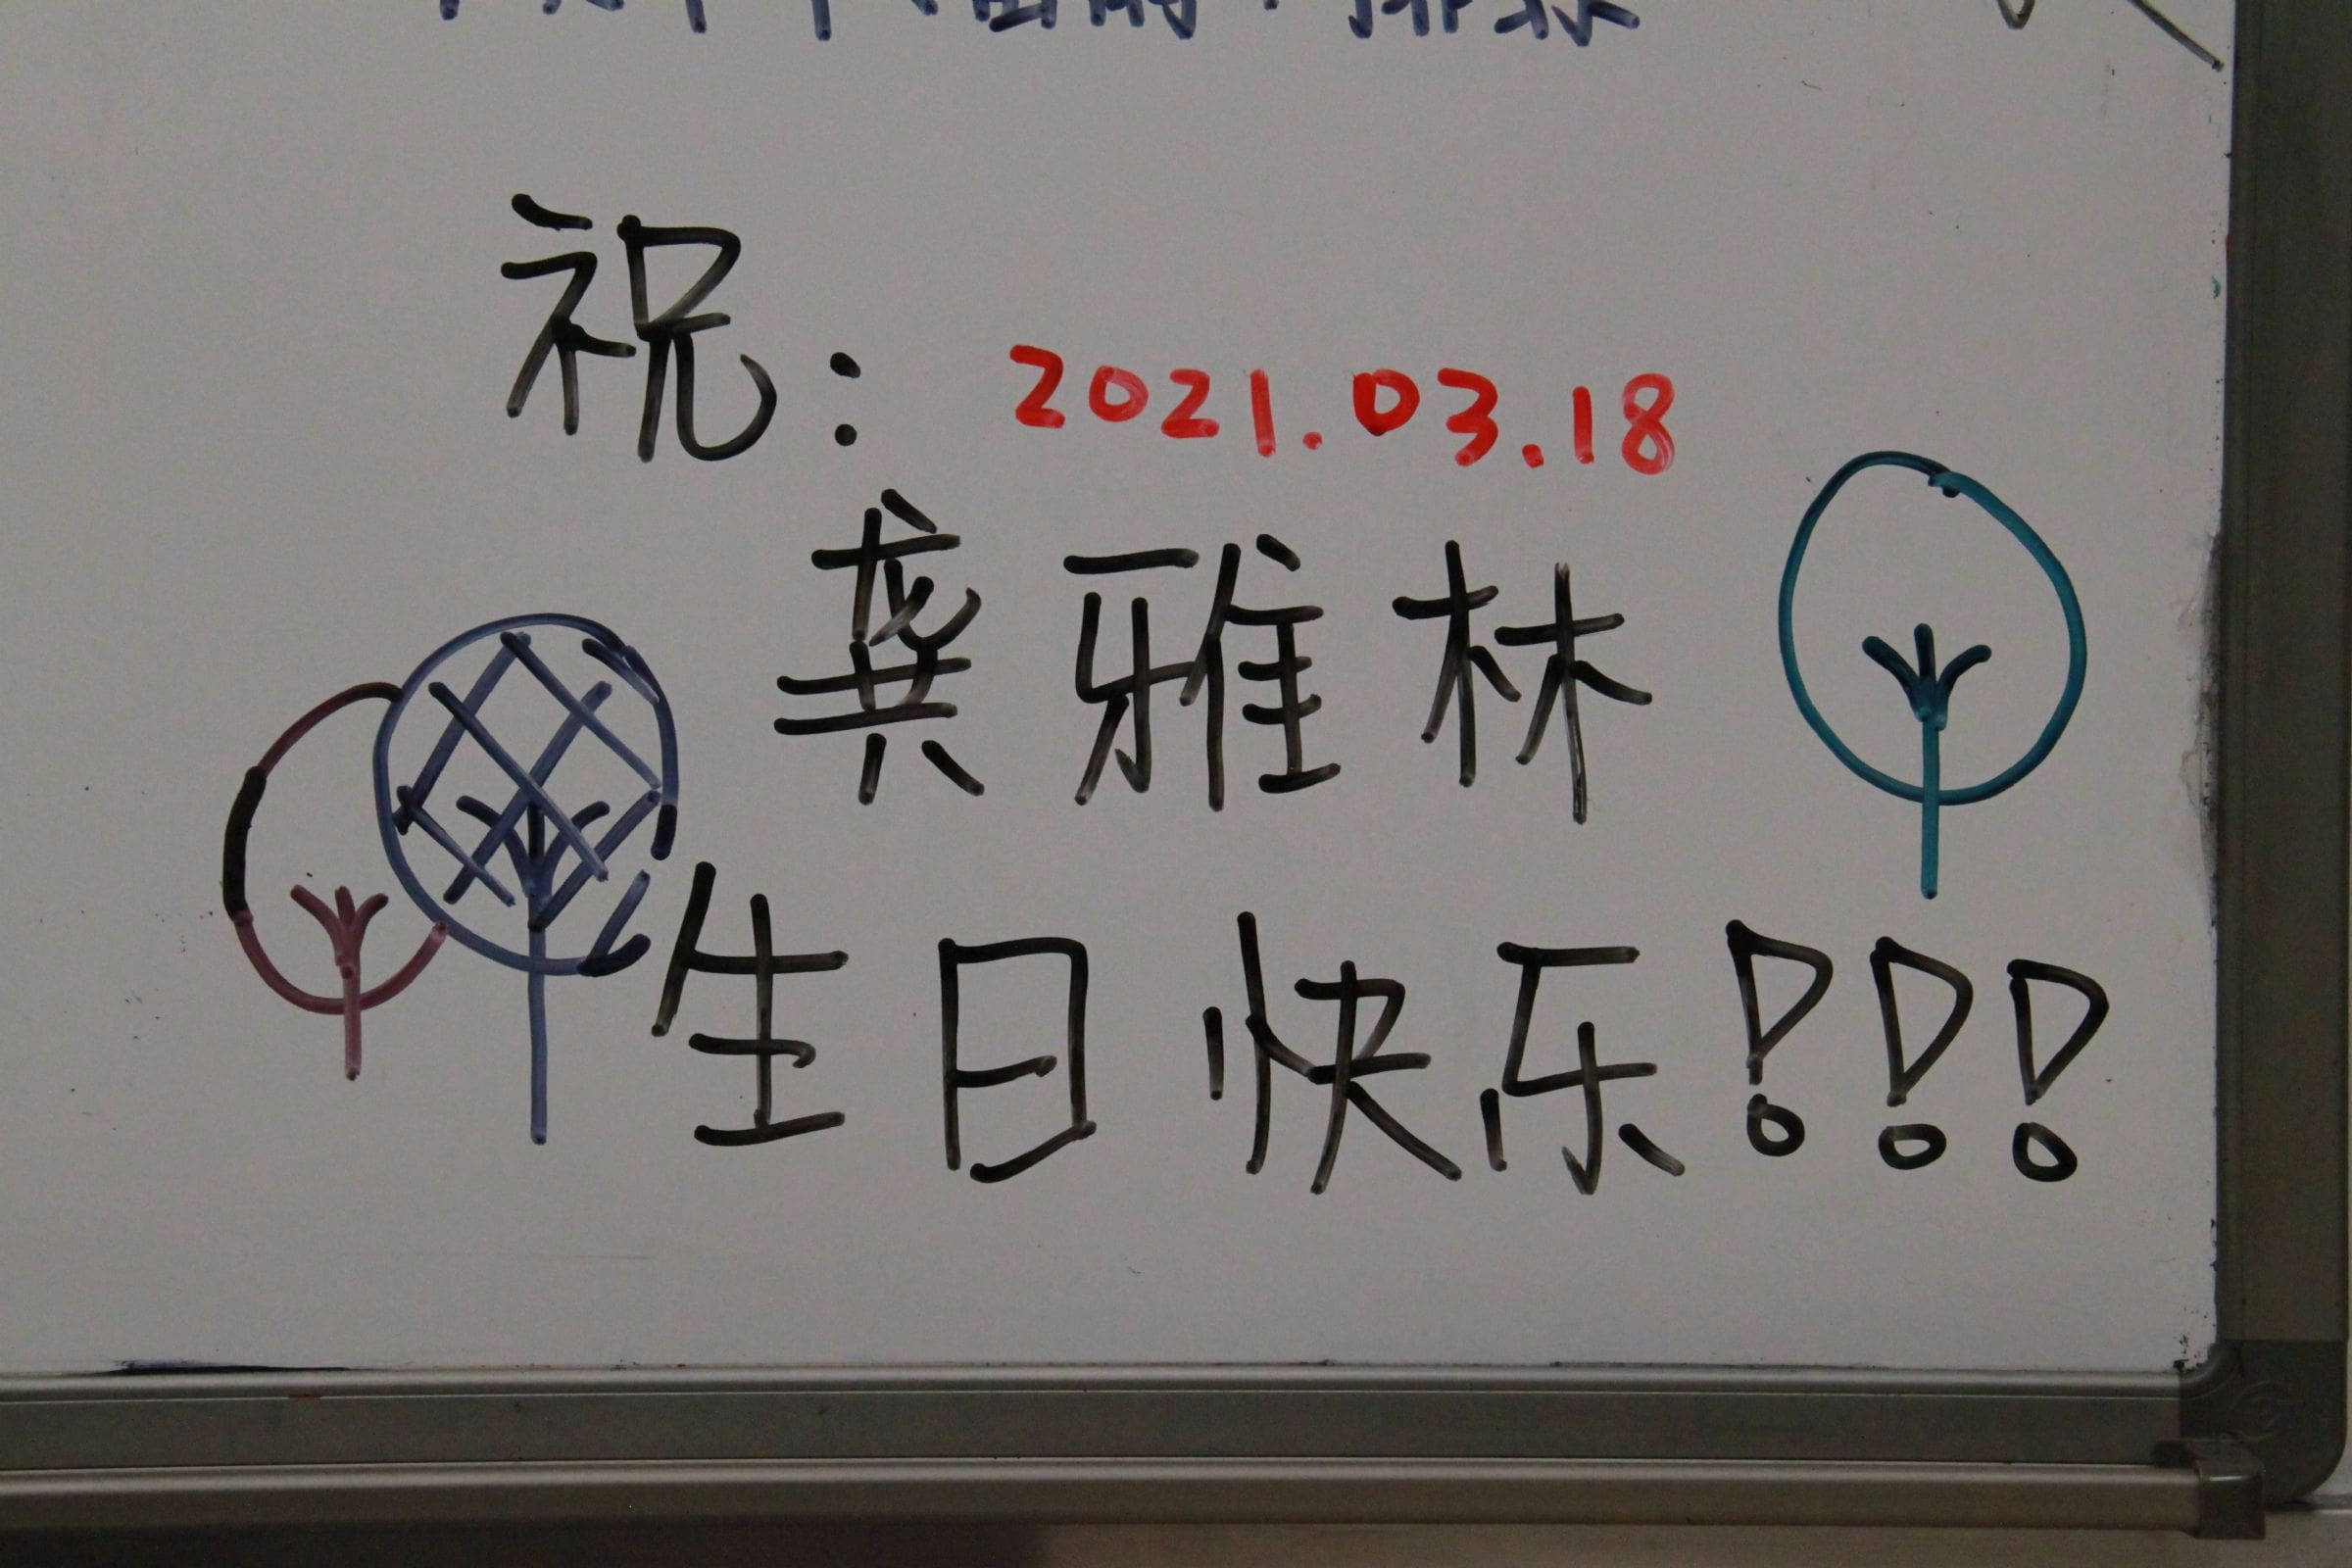 祝： 2021.03.18
龚雅林
生日快乐!!!